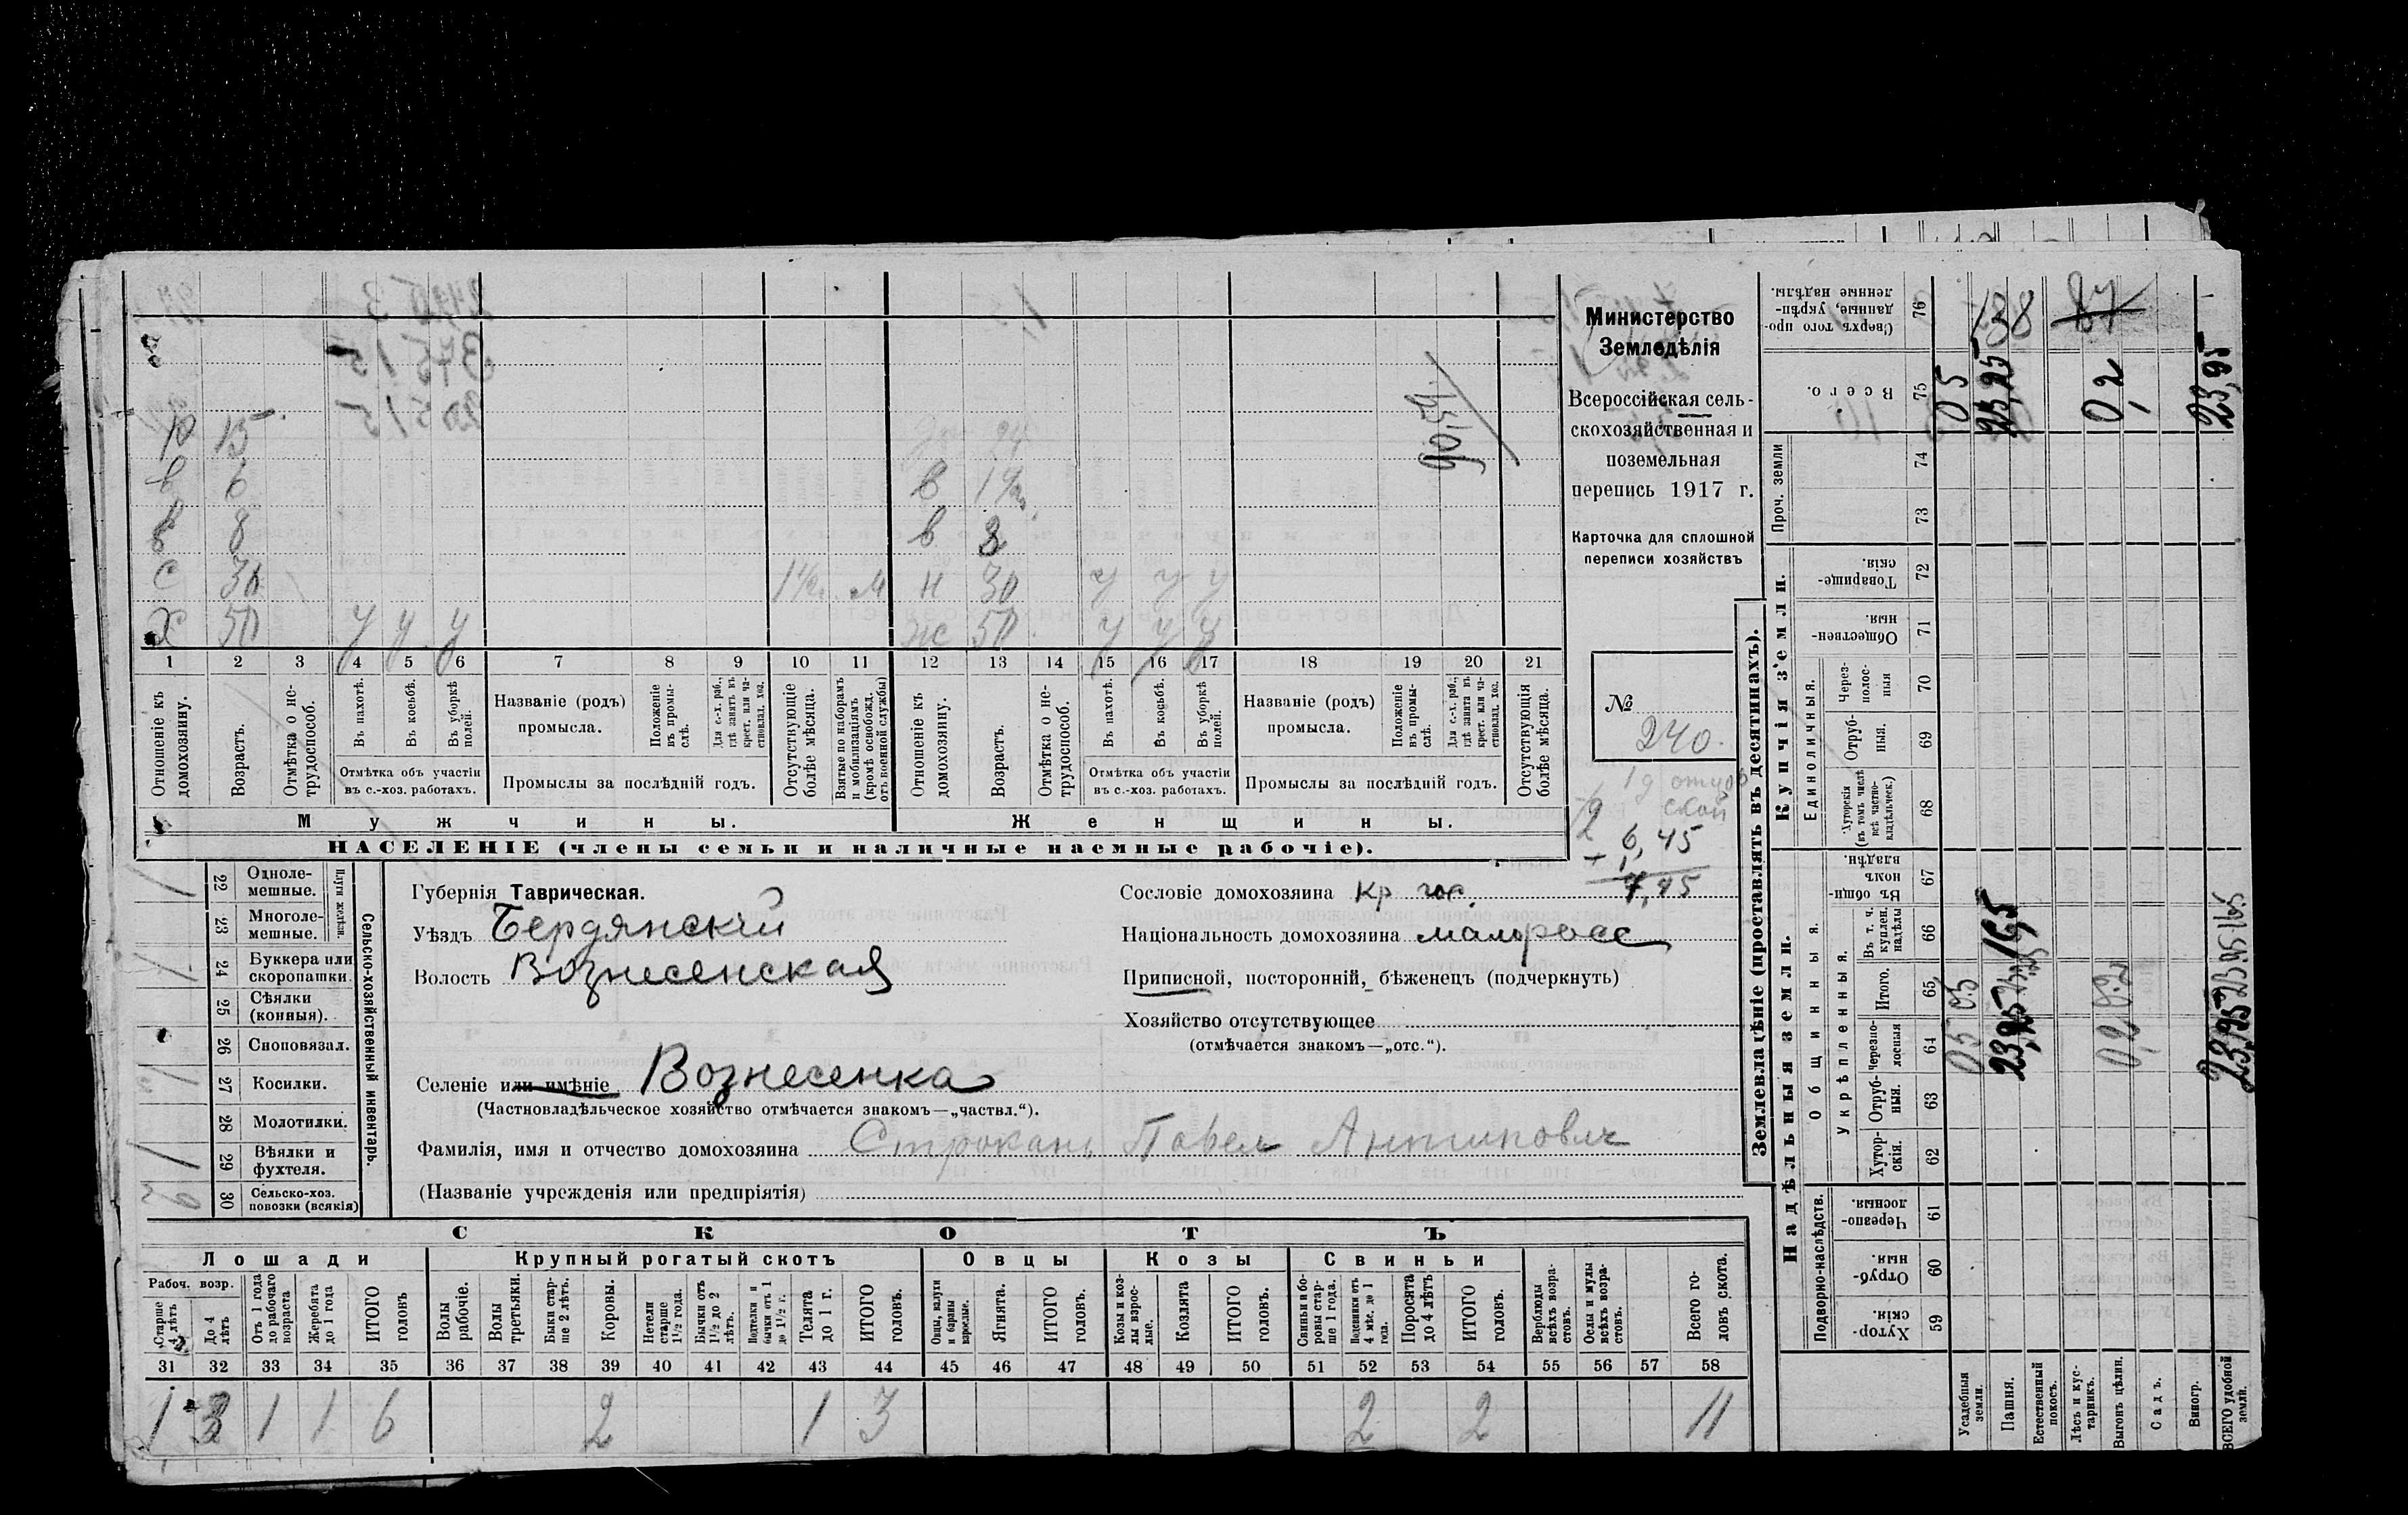 Министерство
Земледѣлія
Всероссійская сель-
скохозяйственная и
поземельная
перепись 1917 г.
Карточка для сплошной
переписи хозяйствъ
№
240.
6,45
7,45
90,15
р 15
в 6 в
в 8 в 8
с 30 м н 30 у у у
х 50 у у у ж 50 у у у
1 2 3 4 5 6 7 8 9 10 11 12 13 14 15 16 17 18 19 20 21
Отношеніе къ домохозяину.
Возрастъ.
Отмѣтка о не-трудоспособ.
Въ пахотѣ.
Въ косьбѣ.
Въ уборкѣ полей.
Отмѣтка объ участіи
въ с.-хоз. работахъ.
Названіе (родъ)
промысла.
Положеніе въ промы-слѣ.
Для с.-х. раб., гдѣ занятъ въ крест. или ча-стновлад. хоз.
Промыслы за послѣдній годъ.
Отсутствующіе болѣе мѣсяца.
Взятые по наборамъ и мобилизаціямъ (кромѣ освобожд. отъ военной службы)
Отношеніе къ домохозяину.
Возрастъ.
Отмѣтка о не-трудоспособ.
Въ пахотѣ.
Въ косьбѣ.
Въ уборкѣ полей.
Отмѣтка объ участіи
въ с.-хоз. работахъ.
Названіе (родъ)
промысла.
Положеніе въ промы-слѣ.
Для с.-х. раб., гдѣ занята въ крест. или ча-стновлад. хоз.
Промыслы за послѣдній годъ.
Отсутствующія болѣе мѣсяца.
Мужчины. Женщины.
НАСЕЛЕНІЕ (члены семьи и наличные наемные рабочіе).
Сельско-хозяйственный инвентарь.
Плуги желѣзн.
1 22 Одноле-мешные.
23 Многоле-мешные.
1 24 Буккера или скоропашки.
25 Сѣялки (конныя).
26 Сноповязал.
1 27 Косилки.
28 Молотилки.
1 29 Вѣялки и фухтеля.
30 Сельско-хоз. повозки (всякія)
Губернія Таврическая.
Уѣздъ Бердянскій
Волость Вознесенская
Сословіе домохозяина кр гос.
Національность домохозяина малоросс
Приписной, посторонній, бѣженецъ (подчеркнуть)
Хозяйство отсутствующее
(отмѣчается знакомъ—„отс.“).
Селеніе или имѣніе Вознесенка
(Частновладѣльческое хозяйство отмѣчается знакомъ—„частвл.“).
Фамилія, имя и отчество домохозяина Строкань Павел Антипович
(Названіе учрежденія или предпріятія)
СКОТЪ
Лошади Крупный рогатый скотъ Овцы Козы Свиньи
Рабоч. возр.
Старше 4 лѣтъ
До 4 лѣтъ
Отъ 1 года до рабочаго возраста
Жеребята до 1 года
ИТОГО головъ
Волы рабочіе.
Волы третьяки.
Быки стар-ше 2 лѣтъ.
Коровы.
Нетели старше 1½ года.
Бычки отъ 1½ до 2 лѣтъ.
бычки отъ 1 до 1½ г.
Телята до 1 г.
ИТОГО головъ.
Овцы, валухи и бараны взрослые.
Ягнята.
ИТОГО головъ.
Козы и коз-лы взрос-лые.
Козлята
ИТОГО головъ.
Свиньи и бо-ровы стар-ше 1 года.
Подсвинки отъ 4 мѣс. до 1 года.
Поросята до 4 лѣтъ
ИТОГО головъ.
Верблюды всѣхъ возра-стовъ.
Ослы и мулы всѣхъ возра-стовъ.
Всего го-ловъ скота.
31 32 33 34 35 36 37 38 39 40 41 42 43 44 45 46 47 48 49 50 51 52 53 54 55 56 57 58
1 3 1 1 6 2 1 3 2 2 11
Землевладѣніе (проставлять въ десятинахъ).
Надѣльныя земли. Купчія земли.
Подворно-наслѣдств.
Общинныя.
Укрѣпленныя.
Единоличныя.
Проч. земли
Хутор-скія 59
Отруб-ныя. 60
Черезпо-лосныя. 61
Хутор-скія. 62
Отруб-ныя. 63
Черезпо-лосныя 64
Итого. 65
Въ т. ч. куплен. надѣлы 66
Въ общин-номъ владѣн. 67
Хуторскія (въ томъ числѣ всѣ частно-владѣльческ.) 68
Отруб-ныя. 69
Через-полос-ныя 70
Обществен-ныя. 71
Товарище-скія. 72
73
74
Всего. 75
Сверхъ того про-данные, укрѣп-ленные надѣлы. 76
Усадебныя земли. 05 05 05
Пашня. 23,25 16,5 23,25 138
Естественный покосъ.
Лѣсъ и кус-тарникъ.
Выгонъ цѣлин. 0,2 0,2 0,2 87
Садъ.
Виногр.
ВСЕГО удобной земли. 23,95 23,95 16,5 23,95